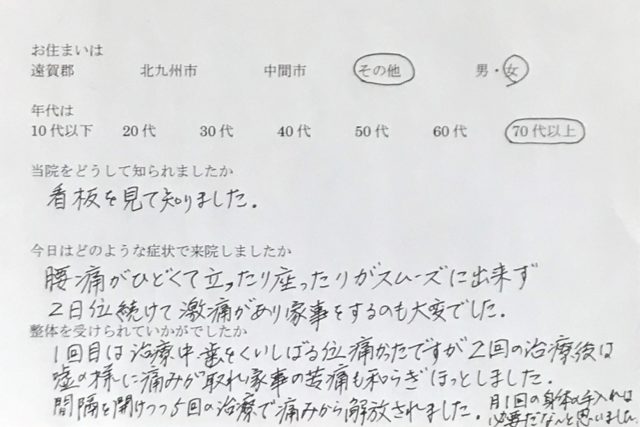 お住まいは
遠賀郡 北九州市 中間市 その他 男・女
年代は
10代以下 20代 30代 40代 50代 60代 70代以上
当院をどうして知られましたか
看板を見て知りました。
今日はどのような症状で来院しましたか
腰痛がひどくて立ったり座ったりがスムーズに出来ず
2日位続けて激痛があり家事をするのも大変でした。
整体を受けられていかがでしたか
1回目は治療中歯をくいしばる位痛かたですが2回の治療後は
嘘の様に痛みが取れ家事の苦痛も和らぎほっとしました。
間隔を開けつつ5回の治療で痛みから解放されました。月1回の身体の手入れは
必要だな〜と思いました